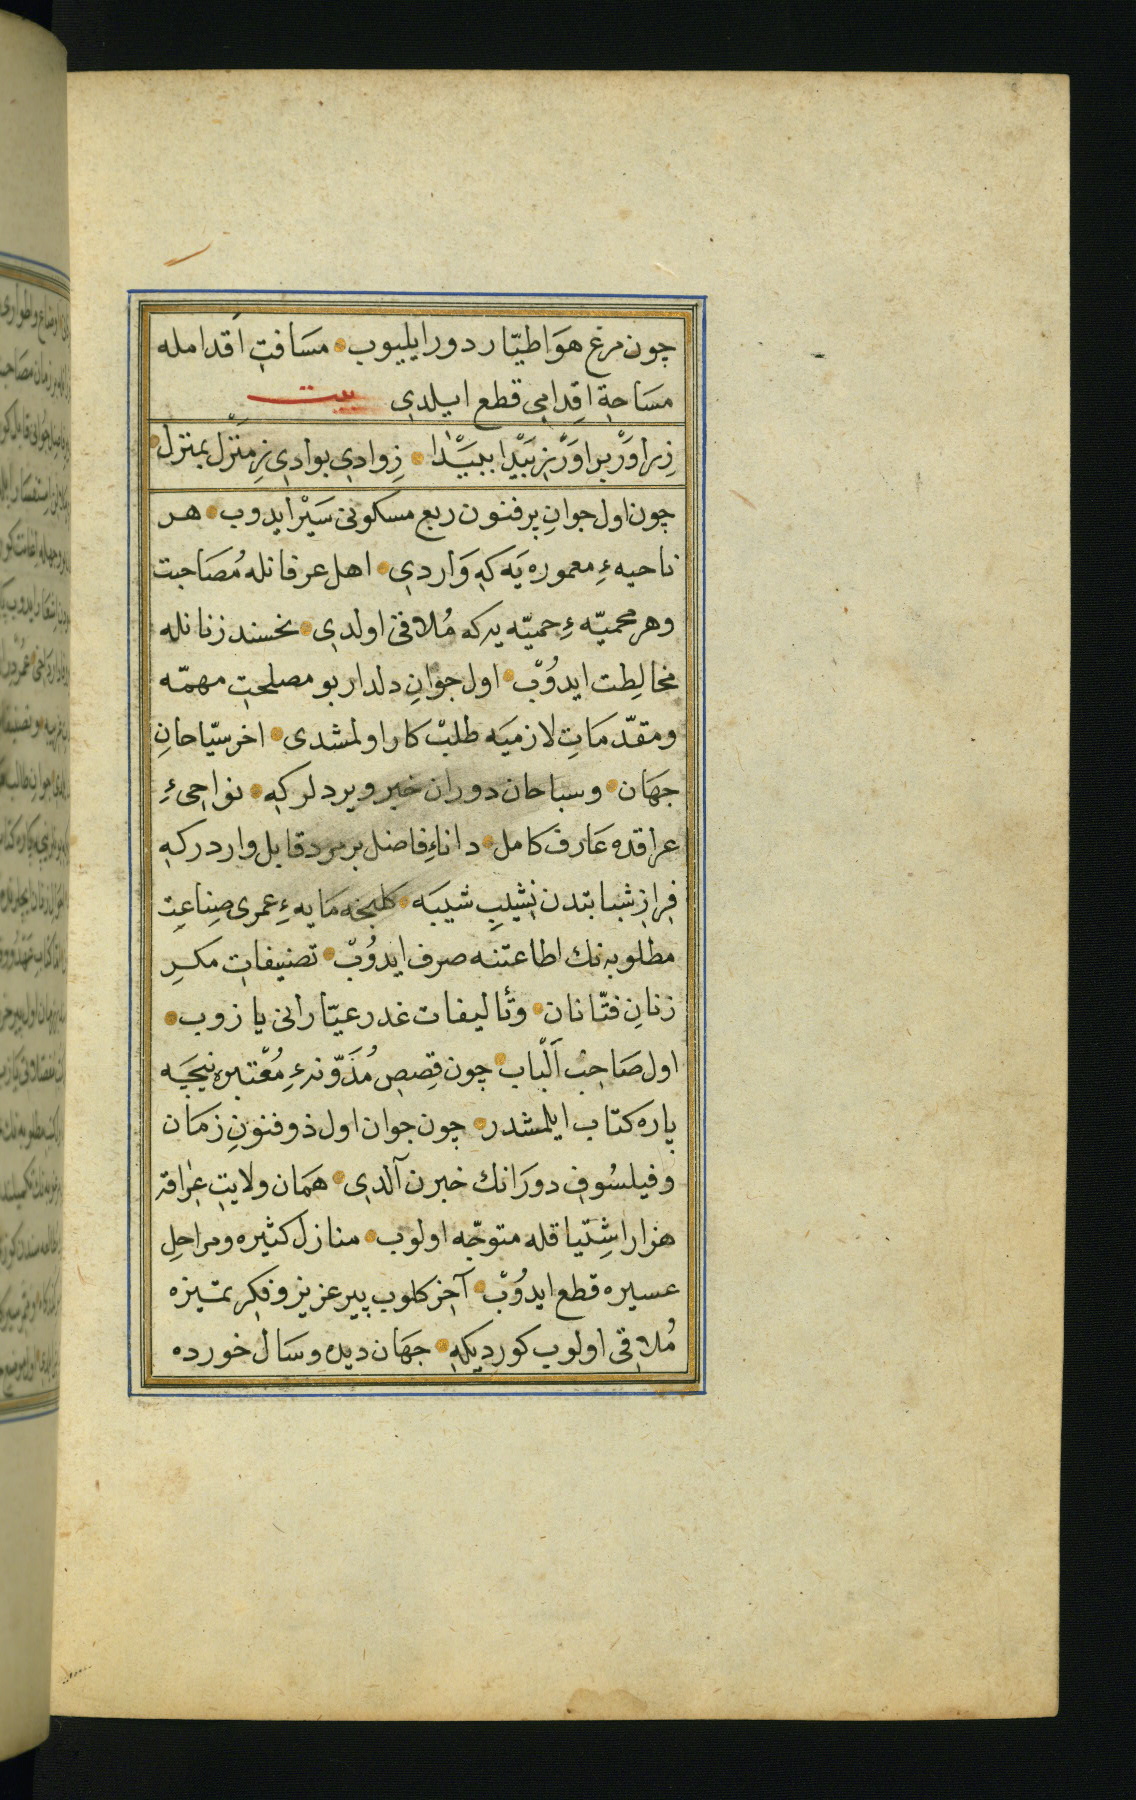 چون مرغ هَوَا طيّار دور ايليوب مسَافتِ اَقدامله
مسَاحهٔ اقدامى قطع ايلدى بيت
زِراوَرْ براوَرْ زِبَيْدا ببَيْدَا زِوادى بوادى زِمَنْزل بمنزل
چون اول جوانِ پرفنون ربع مسكونى سَيْر ايدوب هر
ناحيهءِ معموره يَه كه وَاردى اهل عرفانله مُصَاحبت
وهر محميّهءِ حميّه يه كه مُلاقى اولدى نخسند زنانله
مخالِطت ايدُوْب اول جوَانِ دلدار بو مصلحتِ مهمّه
ومقدّمَاتِ لازميَه طلبْ كار اولمشدى اخر سيّاحانِ
جهَان وسباحان دوران خبر ويرديلر كه نواحىءِ
عراقده عَارف كامل داناءِ فاضل بر مرد قابل واردر كه
فِرازِ شبابتدن نِشيبِ شيبَه كلنجه مَايهءِ عمرى صِناعتِ
مطلوبه نك اطاعتنه صرف ايدُوْب تصنيفاتِ مكرِ
زنانِ فتّانان وتأليفات غدر عيّارانى يازوب
اول صَاحبْ اَلْباب چون قِصصِ مُدَوّنهءِ مُعْتبره نيجَه
پاره كتاب ايلمشدر چون جوان اول ذوفنونِ زمَان
وفيلسُوفِ دورَانك خبرن آلدى همَان ولايتِ عِراقه
هزار اشِتياقله متوجّه اولوب منازل كثيره ومراحلِ
عسيره قطع ايدُوْب آخر كلوب پير عزيز وفكر تميزه
مُلاقى اولوب كورديكه جهَان ديده وسَال خورده